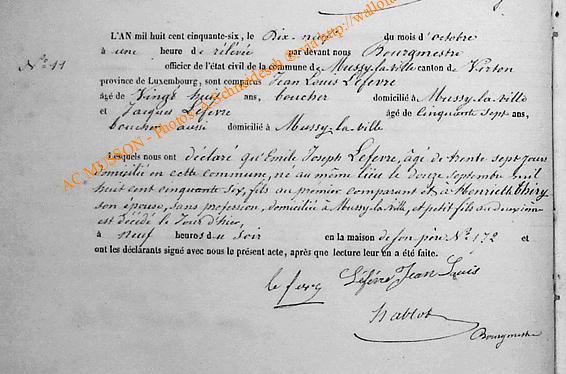 N° 41
L'AN mil huit cent cinquante-six, le Dix-neuf du mois d'octobre
à une heure de rélévée par devant nous Bourgmestre
officier de l'état civil de la commune de Mussy-la-ville canton de Virton
province de Luxembourg, sont comparus Jean Louis Lefevre
âgé de Vingt huit ans, boucher domicilié à Mussy-la-ville
et Jacques Lefevre âgé de cinquante sept ans,
boucher aussi domicilié à Mussy-la-ville
Lesquels nous ont déclaré qu'Emile Joseph Lefevre, âgé de trente sept jours
domicilié en cette commune, né au même lieu le douze septembre mil
huit cent cinquante six, fils au prémier comparant et à Henriette Thiry
son épouse, sans profession, domiciliée à Mussy-la-ville, et petit fils au deuxième
est décédé le Jour d'hier,
à neuf heures du soir en la maison de son père N° 172 et
ont les déclarants signé avec nous le présent acte, après que lecture leur en a été faite.
Léfèvre Jean Louis
Bourgmestre
AC MUSSON - Photos : A. Schneidesch © via http://wallo